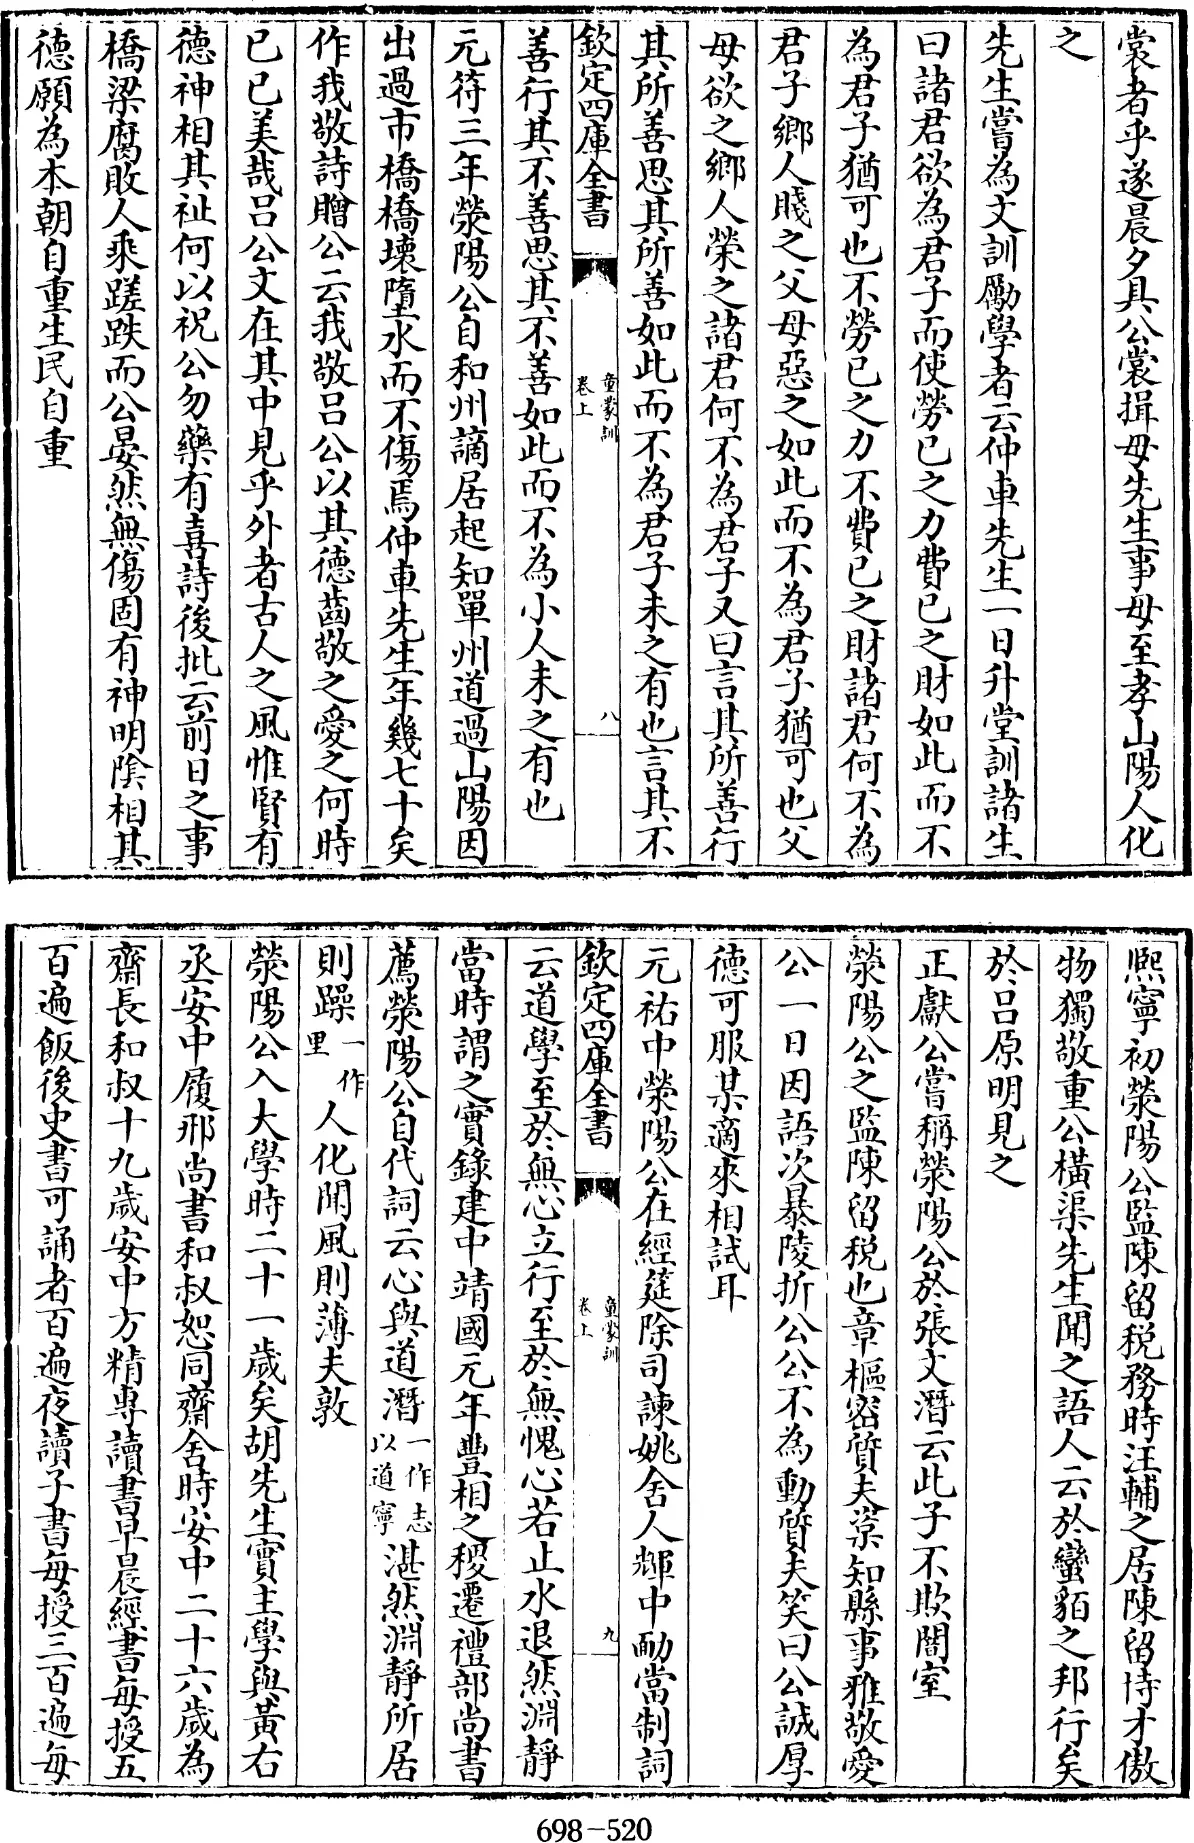 裳者乎遂晨夕具公裳揖母先生事母至孝山陽人化
之
先生嘗為文訓勵學者云仲車先生一日升堂訓諸生
曰諸君欲為君子而使勞己之力費己之財如此而不
為君子猶可也不勞己之力不費己之財諸君何不為
君子鄉人賤之父母惡之如此而不為君子猶可也父
母欲之鄉人榮之諸君何不為君子又曰言其所善行
其所善思其所善如此而不為君子未之有也言其不
欽定四庫全書
童蒙訓
卷上
八
善行其不善思其不善如此而不為小人未之有也
元符三年滎陽公自和州謫居起知單州道過山陽因
出過市橋橋壞墮水而不傷焉仲車先生年幾七十矣
作我敬詩贈公云我敬吕公以其德齒敬之愛之何時
已已美哉吕公文在其中見乎外者古人之風惟賢有
德神相其祉何以祝公勿藥有喜詩後批云前日之事
橋梁腐敗人乘蹉跌而公晏然無傷固有神明陰相其
德願為本朝自重生民自重
熈寧初滎陽公監陳留税務時汪輔之居陳留恃才傲
物獨敬重公橫渠先生聞之語人云於蠻貊之邦行矣
於吕原明見之
正獻公嘗稱滎陽公於張文潛云此子不欺闇室
滎陽公之監陳留税也章樞密質夫楶知縣事雅敬愛
公一日因語次暴陵折公公不為動質夫笑曰公誠厚
德可服某適來相試耳
元祐中滎陽公在經筵除司諫姚舍人輝中勔當制詞
欽定四庫全書
童蒙訓
卷上
九
云道學至於無心立行至於無愧心若止水退然淵靜
當時謂之實錄建中靖國元年豐相之稷遷禮部尚書
薦滎陽公自代詞云心與道潛一作志以道寧湛然淵靜所居
則躁一作里人化聞風則薄夫敦
滎陽公入大學時二十一歲矣胡先生實主學與黃右
丞安中履邢尚書和叔恕同齋舍時安中二十六歲為
齋長和叔十九歲安中方精專讀書早晨經書每授五
百遍飯後史書可誦者百遍夜讀子書每授三百遍每
698-520